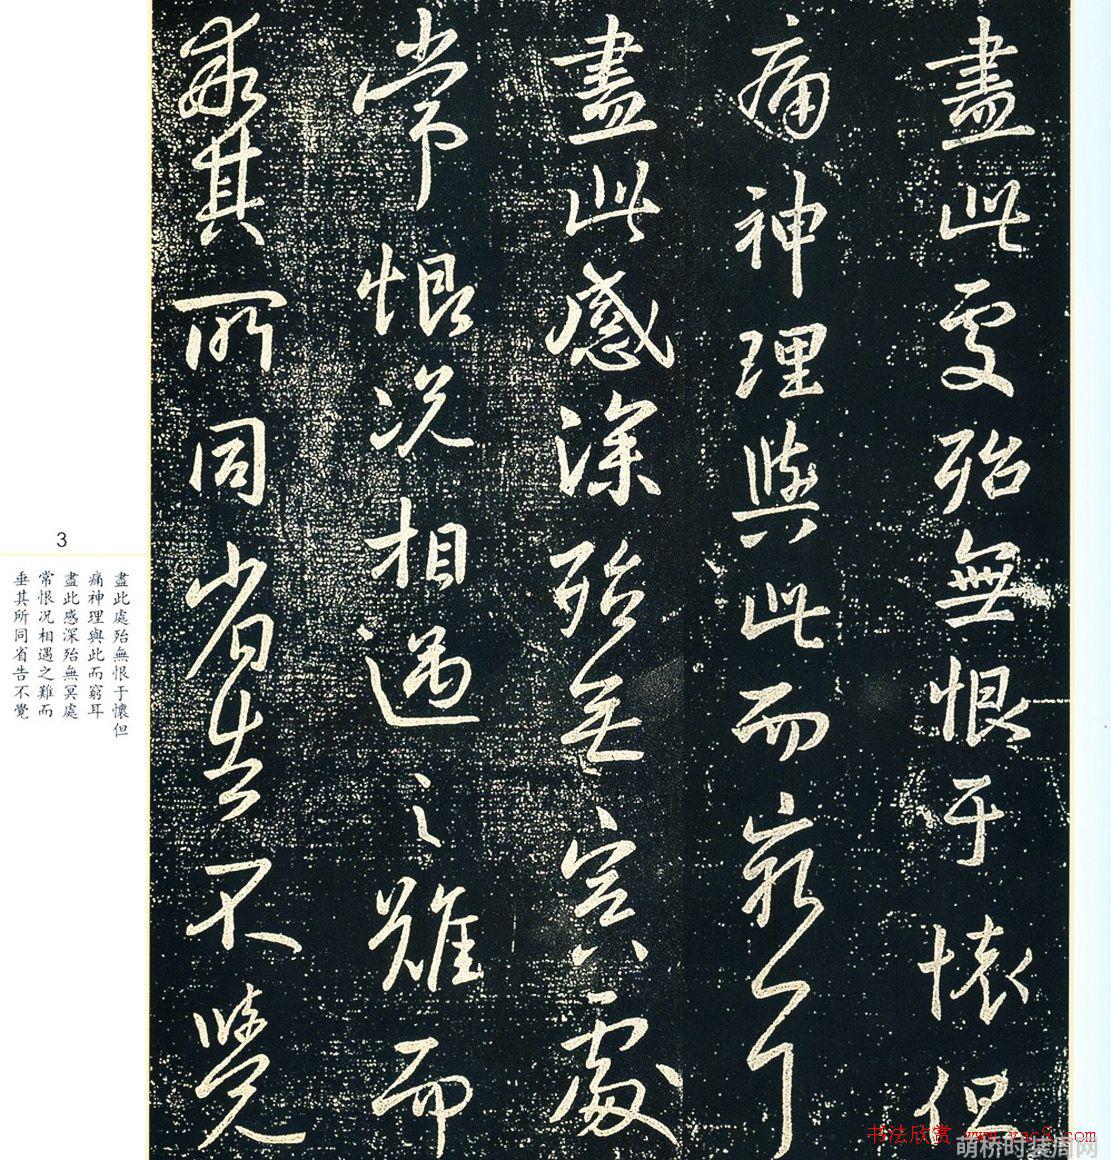 盡此處殆無恨于懷但
痛神理與此而窮耳
盡此感深殆無冥處
常恨况相遇之難而
乖其所同省告不覺
3
盡此處殆無恨于懷但
痛神理與此而窮耳
盡此感深殆無冥處
常恨况相遇之難而
垂其所同省告不覺
书法欣赏 www.yac8.com
萌桥时装周网